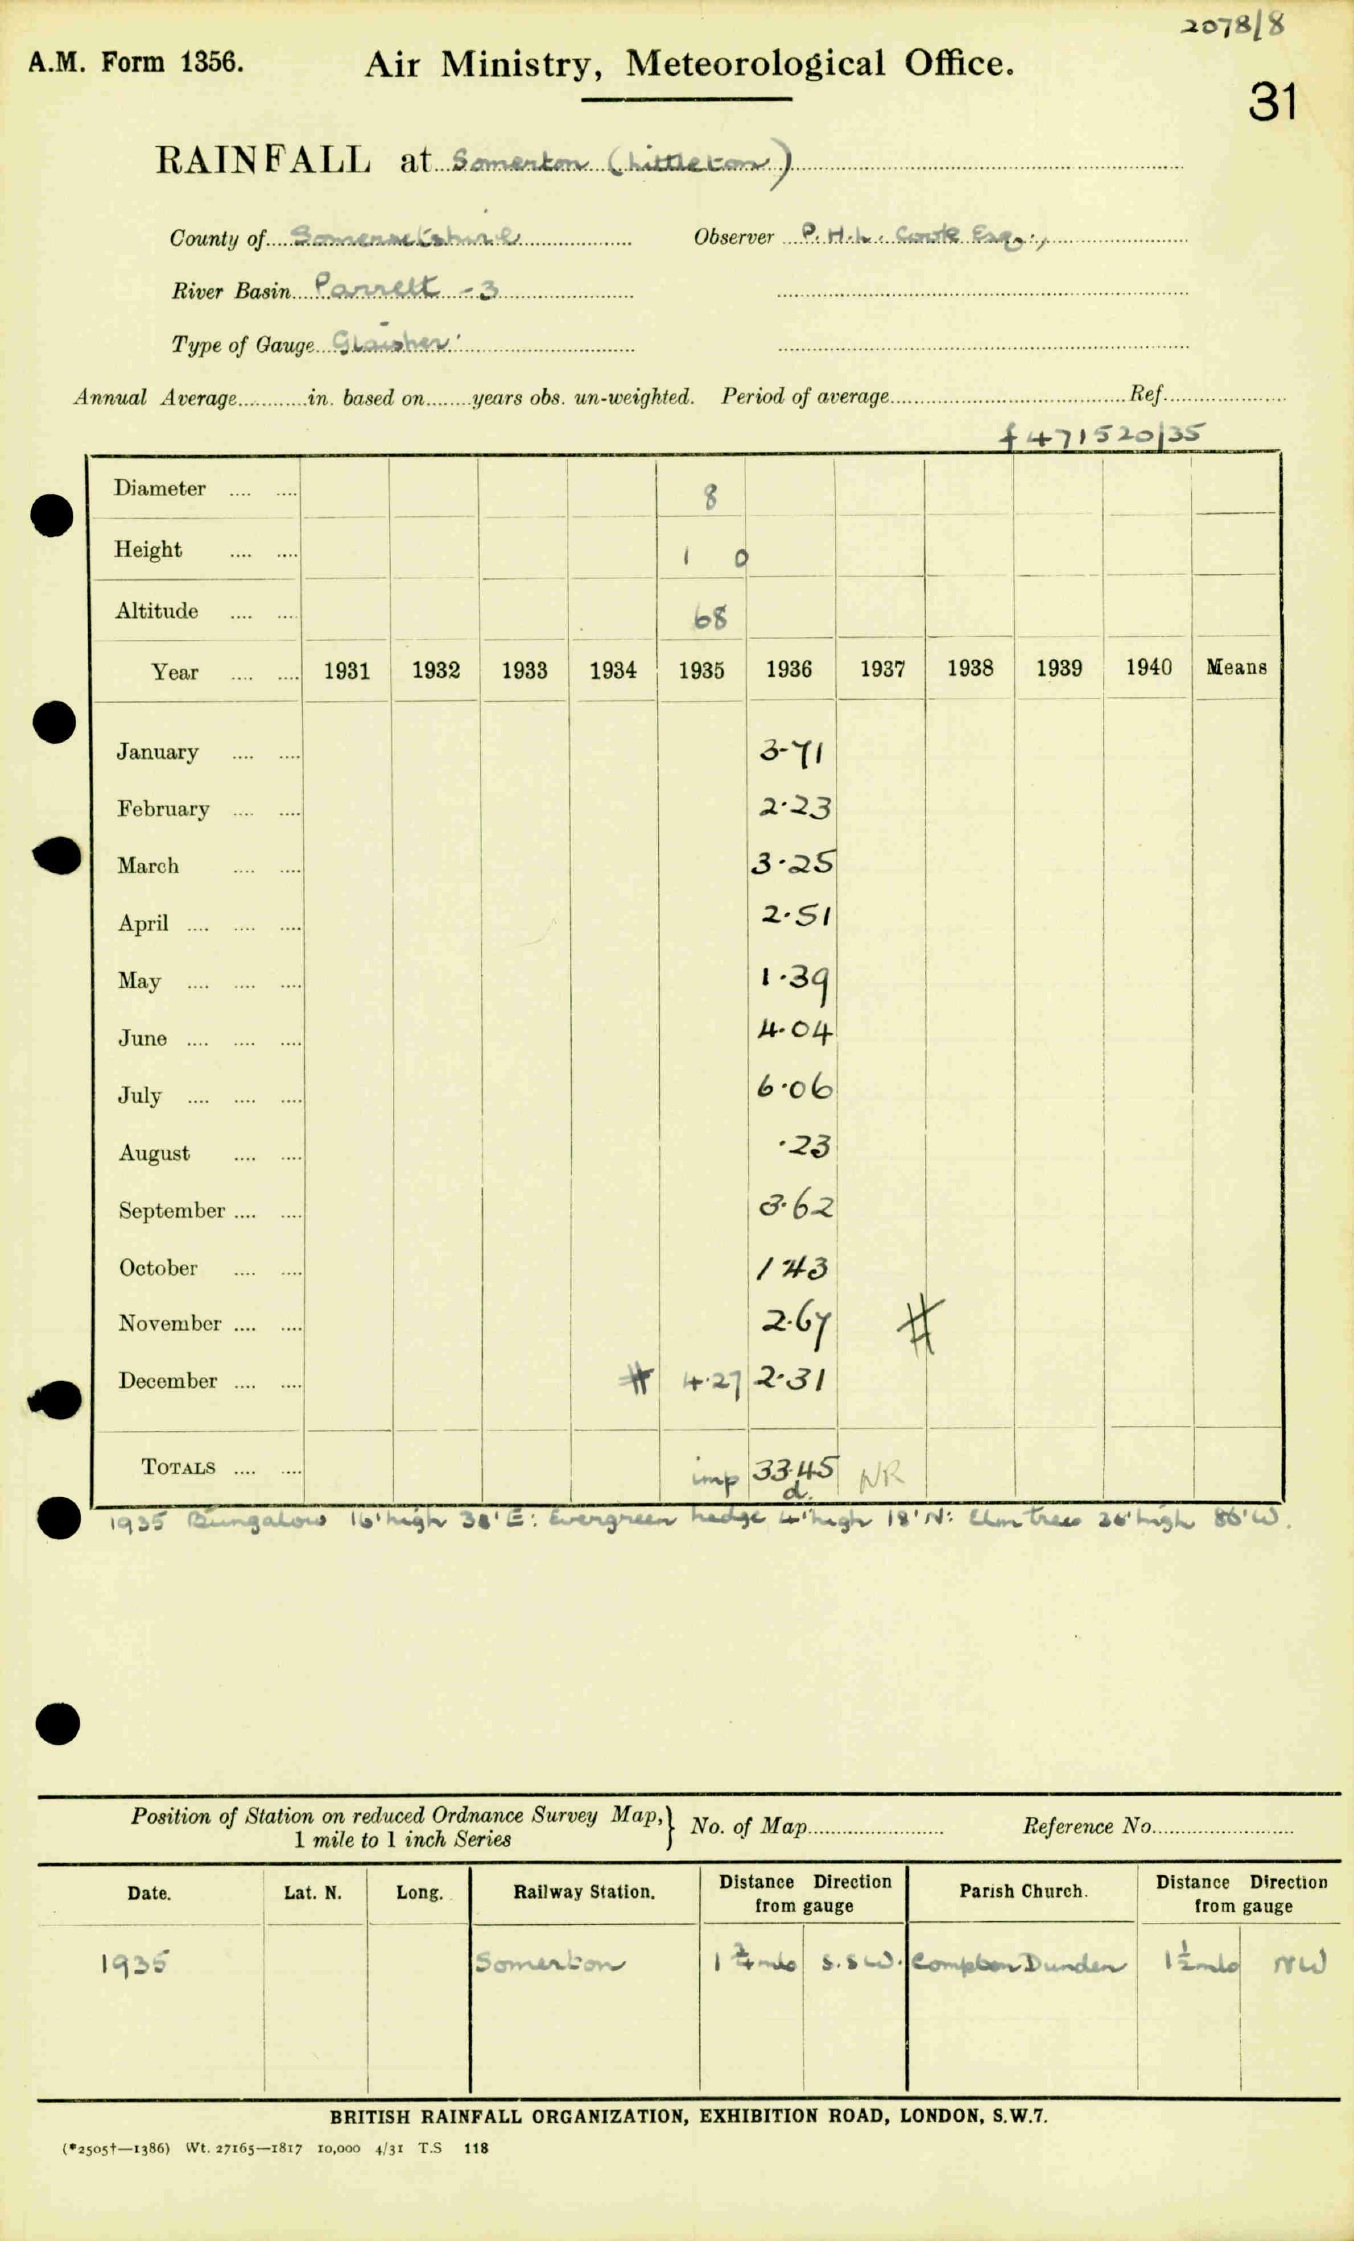 2078/8
A.M. Form 1356. Air Ministry, Meteorological Office.
31
RAINFALL at Somerton (Littleton)
County of Somersetshire Observer P.H.L. Cook Esq.,
River Basin Parrett - 3
Type of Gauge Glaisher
Annual Average............in. based on........years obs. un-weighted. Period of average.......... Ref..........
f 471520/35
Diameter .... .... 8
Height .... .... 1 0
Altitude .... .... 68
Year .... .... 1931 1932 1933 1934 1935 1936 1937 1938 1939 1940 Means
January .... .... 3.71
February .... .... 2.23
March .... .... 3.25
April .... .... .... 2.51
May .... .... .... 1.39
June .... .... .... 4.04
July .... .... .... 6.06
August .... .... .23
September .... .... 3.62
October .... .... 1 43
November .... .... 2.67 #
December .... .... # 4.27 2.31
TOTALS .... .... imp 33.45 NR
d.
1935 Bungalow 16' high 38' E: Evergreen hedge 4' high 18' N: Elm trees 36' high 86' W.
Position of Station on reduced Ordnance Survey Map,} No. of Map.......... Reference No..........
1 mile to 1 inch Series
Date. Lat. N. Long. Railway Station. Distance Direction from gauge Parish Church. Distance Direction from gauge
1935 Somerton 1 3/4 mls S.SW. Compton Dunden 1 1/2 mls NW
BRITISH RAINFALL ORGANIZATION, EXHIBITION ROAD, LONDON, S.W.7.
(*2505†—1386) Wt. 27165—1817 10,000 4/31 T.S 118